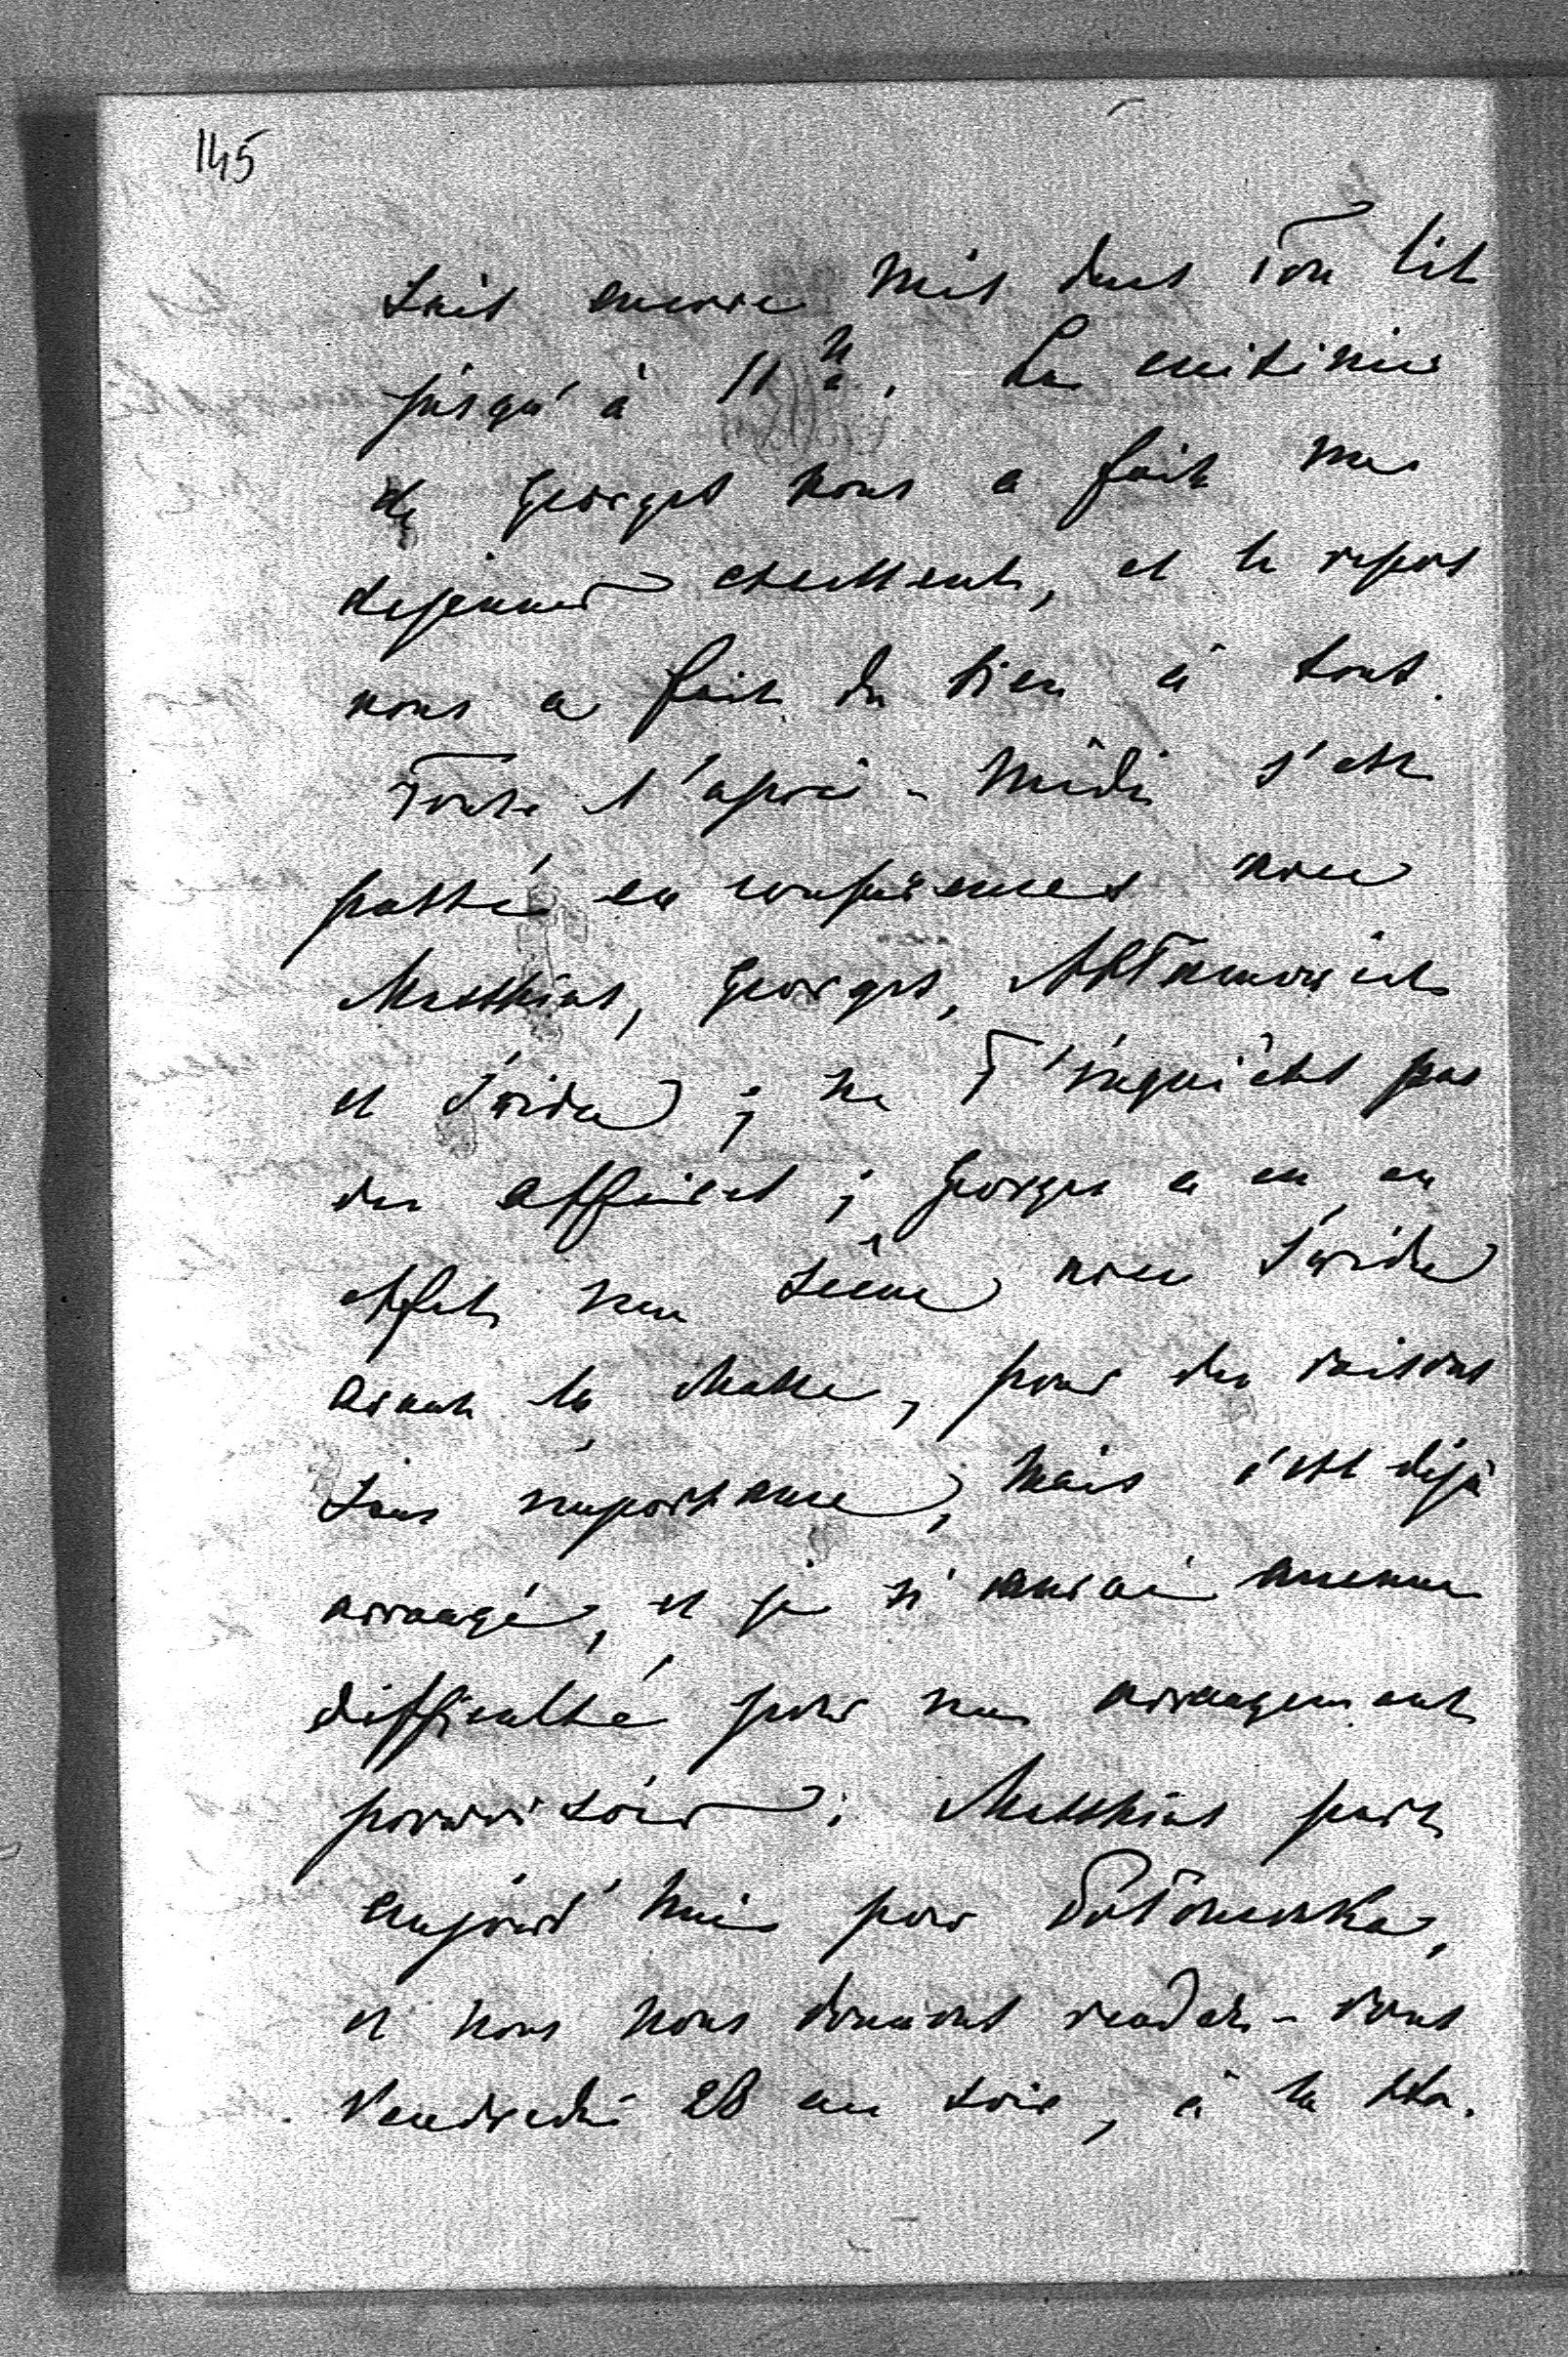 145
suis encore mis dans Ton lit
jusqu'à 11 h. La cuisinière
de Georges nous a fait un
dejeuner excellent, et le repos
nous a fait du bien à tous.
Toute l'après-midi s'est
passé en conférences avec
Matthias, Georges,
et Swida; ne T'inquiètes pas
des affaires; Georges a eu en
effet une scène avec Swida
avant la Masse, pour des raisons
sans importance, mais c'est déjà
arrangé, et je n'aurai aucune
difficulté pour un arrangement
provisoire. Matthias part
aujourd'hui pour
et nous nous donnons rendez-vous
Vendredi 28 au soir, à la sta.